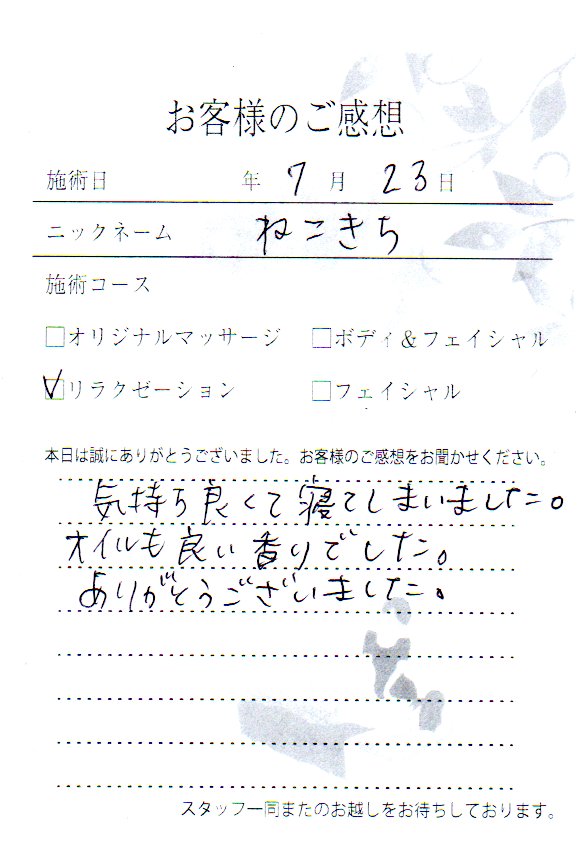 お客様のご感想
施術日 年 7 月 23 日
ニックネーム ねこきち
施術コース
□オリジナルマッサージ □ボディ&フェイシャル
☑リラクゼーション □フェイシャル
本日は誠にありがとうございました。お客様のご感想をお聞かせください。
気持ち良くて寝てしまいました。
オイルも良い香りでした。
ありがとうございました。
スタッフ一同またのお越しをお待ちしております。